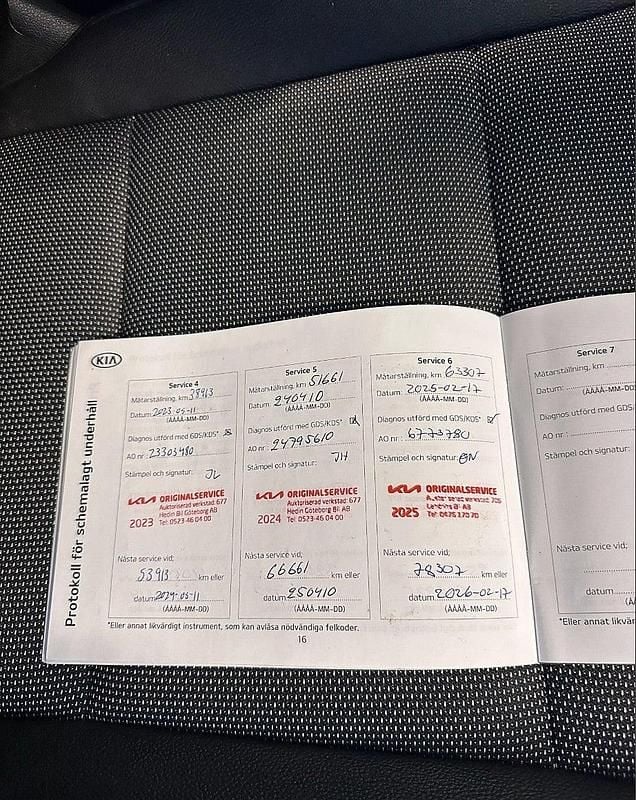 KIA
Protokoll för schemalagt underhåll
Service 4
Mätarställning, km 38913
Datum: 2023-05-11
(ÅÅÅÅ-MM-DD)
Diagnos utförd med GDS/KDS*
AO nr: 23303480
Stämpel och signatur: JL
KIA ORIGINALSERVICE
Auktoriserad verkstad: 677
Hedin Bil Göteborg AB
2023 Tel: 0523-46 04 00
Nästa service vid;
53913 km eller
datum 2024-05-11
(ÅÅÅÅ-MM-DD)
Service 5
Mätarställning, km 51661
Datum: 240410
(ÅÅÅÅ-MM-DD)
Diagnos utförd med GDS/KDS*
AO nr: 24795610
Stämpel och signatur: JH
KIA ORIGINALSERVICE
Auktoriserad verkstad: 677
Hedin Bil Göteborg AB
2024 Tel: 0523-46 04 00
Nästa service vid;
66661 km eller
datum 250410
(ÅÅÅÅ-MM-DD)
Service 6
Mätarställning, km 63307
Datum: 2025-02-17
(ÅÅÅÅ-MM-DD)
Diagnos utförd med GDS/KDS*
AO nr: 6773780
Stämpel och signatur:
KIA ORIGINALSERVICE
2025
Nästa service vid;
78307 km eller
datum 2026-02-17
(ÅÅÅÅ-MM-DD)
*Eller annat likvärdigt instrument, som kan avläsa nödvändiga felkoder.
16
Service 7
Mätarställning, km
Datum: (ÅÅÅÅ-MM-DD)
Diagnos utförd med GDS
AO nr:
Stämpel och signatur:
Nästa service vid;
datum
(ÅÅÅÅ-M
*Eller annat likvär